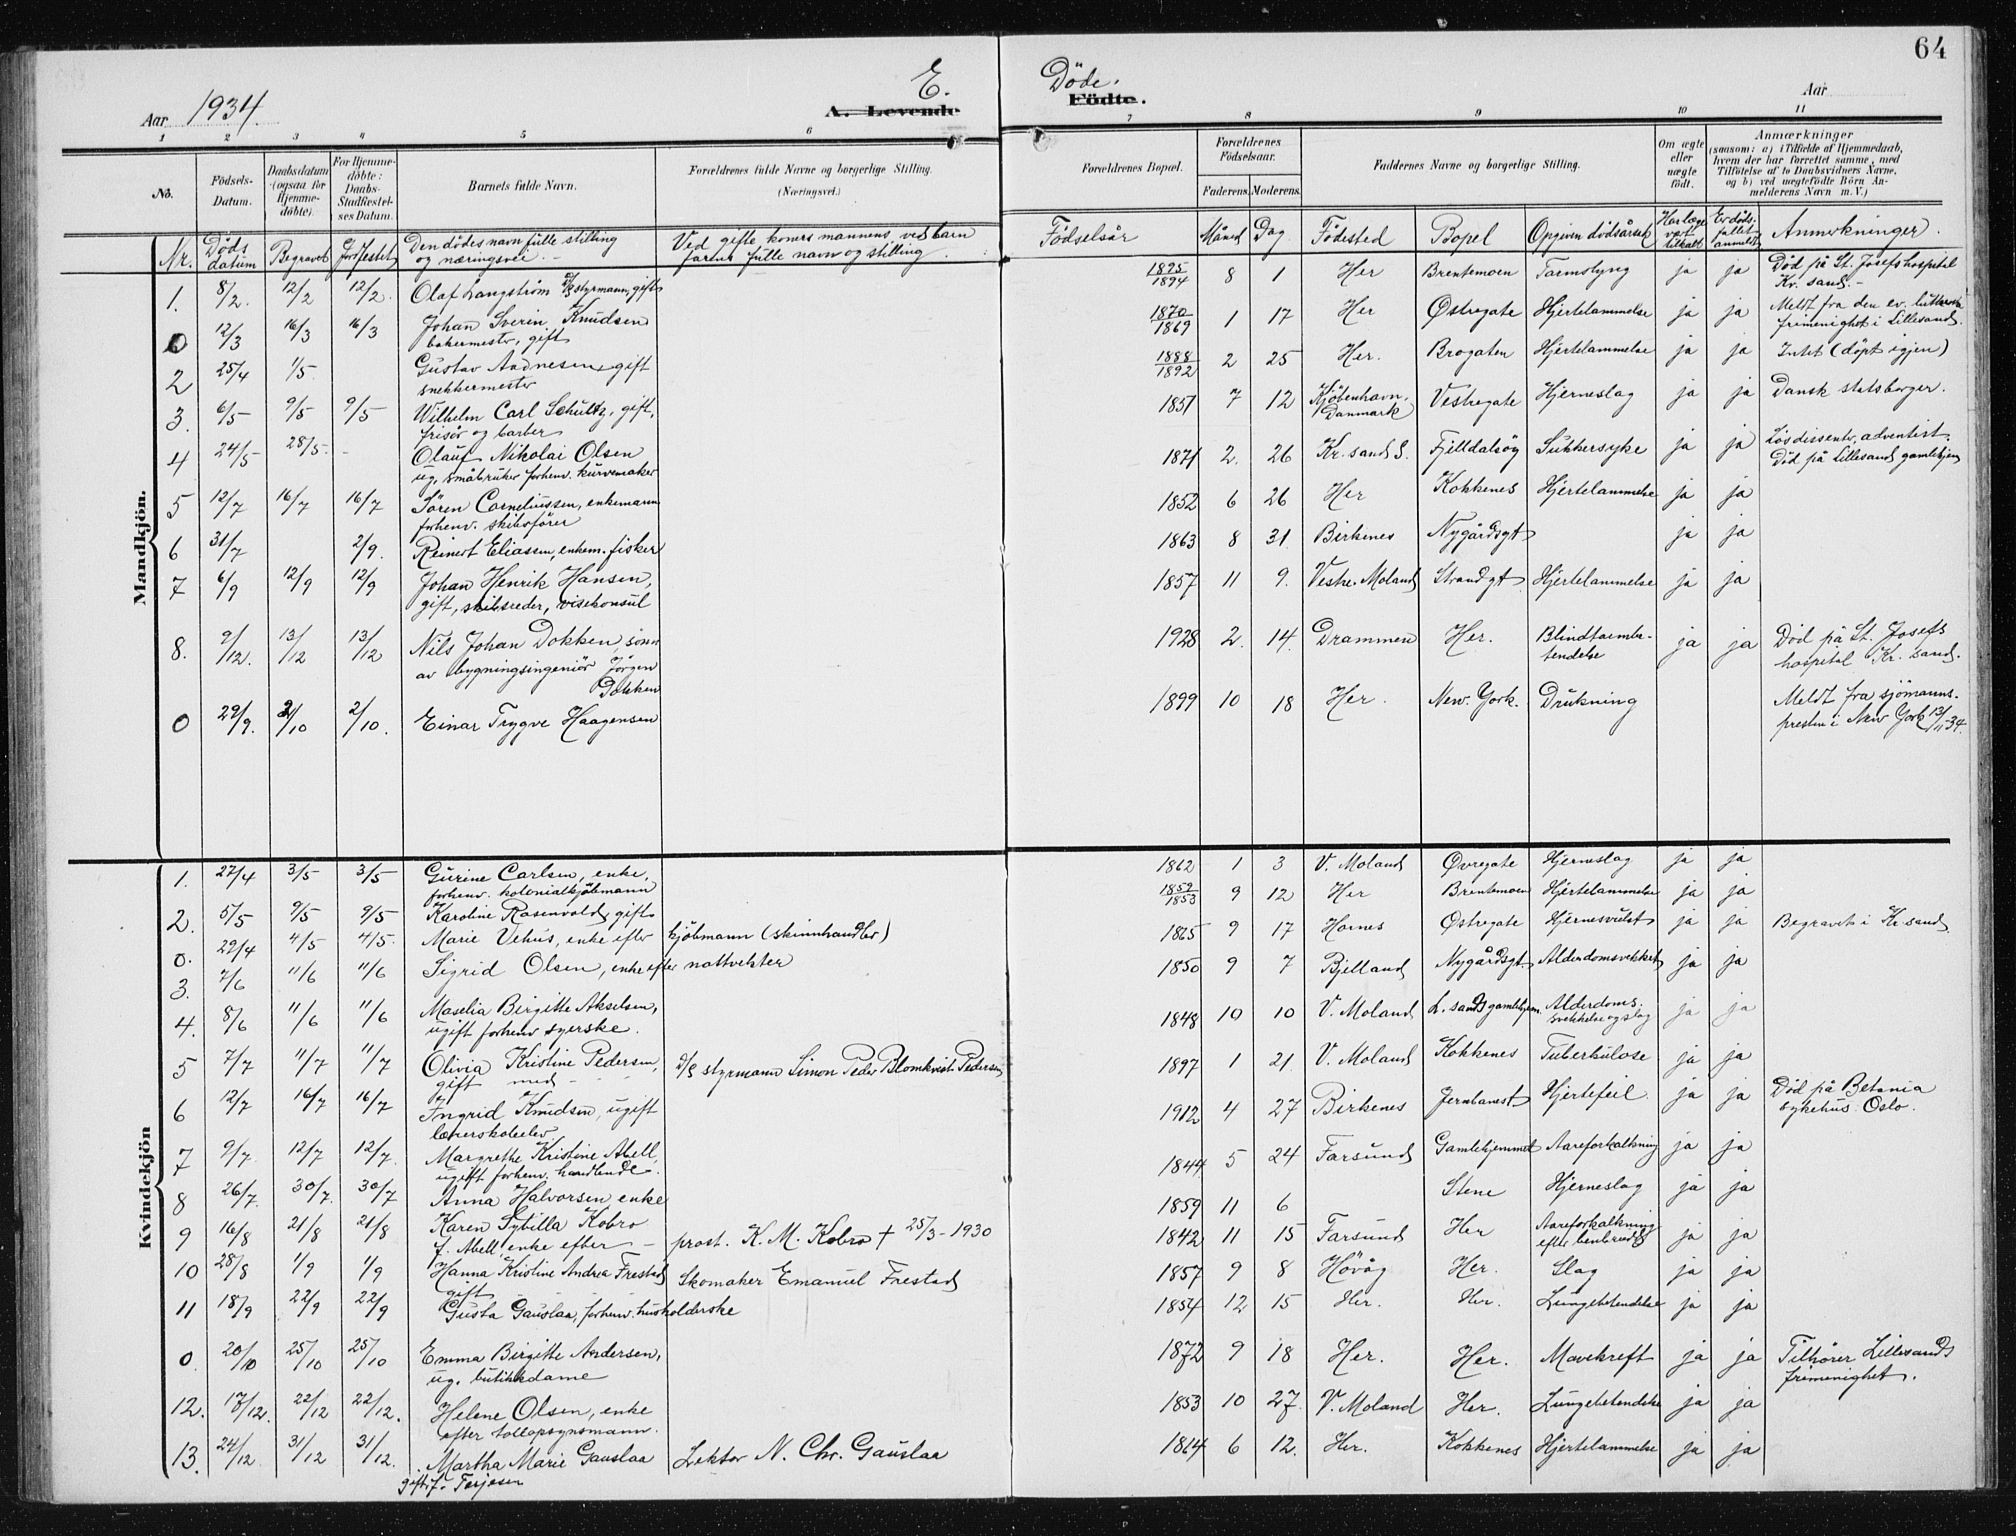 64
Aar 1934.
E. Döde.
A. Levende Födte.
Aar
1 2 3 4 5 6 7 8 9 10 11
No.
Födsels-Datum.
Daabsdatum (ogsaa for Hjemme-döbte).
For Hjemme-döbte: Daabs-Stadfæstel-ses Datum.
Barnets fulde Navn.
Forældrenes fulde Navne og borgerlige Stilling. (Næringsvei.)
Forældrenes Bopæl.
Forældrenes Födselsaar.
Faderens. Moderens.
Faddernes Navne og borgerlige Stilling.
Om ægte eller uægte födt.
Anmærkninger (saasom: a) i Tilfælde af Hjemmedaab, hvem der har forrettet samme, med Tilföielse af to Daabsvidners Navne, og b) ved uægtefödte Börn An-melderens Navn m. V.)
Nr. Döds datum Begravet Jordfestet Den dödes navn fulle stilling og næringsvei Ved gifte koners mannens ved barn farens fulle navn og stilling
Födselsår Måned Dag Födested Bopel Opgiven dödsårsak Har læge vært tilkalt Er döds-fallet anmeldt Anmerkninger.
Mandkjön.
1. 8/2. 12/2 12/2. Olaf Langström D/S styrmann, gift 1895 1894 8 1 Her Brentemoen Tarmslyng ja ja Död på St. Josefs hospital Kr. sand.
0 12/3 16/3 16/3 Johan Sverin Knudsen bakermester, gift 1870 1869 1 17 Her Østregate Hjertelammelse ja ja Meldt fra den ev. lutherske frimenighet i Lillesand.
2 25/4 1/5. Gustav Aadnesen, gift snekkermester 1888 1892 2 25 Her. Brogaten Hjertelammelse ja ja Intet (döpt igjen)
3. 6/5 9/5 9/5 Wilhelm Carl Schultz, gift, frisör og barber 1851 7 12 Kjöbenhavn, Danmark Vestregate Hjerneslag ja ja Dansk statsborger.
4 24/5 28/5 - Olauf Nikolai Olsen ug, småbruker forhenv. kurvemaker 1871 2. 26 Kr. sand S. Fjelldalsög Sukkersyke ja ja Lösdissenter, adventist. Död på Lillesand gamlehjem
5 12/7 16/7 16/7 Sören Corneliussen, enkemann forhenv. skibsförer 1852 6 26 Her Kokkenes Hjertelammelse ja ja
6 31/7 2/9. Reinert Eliassen, enkem. fisker 1863 8 31 Birkenes Nygårdsgt ja ja
7 6/9 12/9 12/9 Johan Henrik Hansen, gift, skibsreder, visekonsul 1857 11 9. Vestre-Moland Strandgt Hjertelammelse ja ja
8. 9/12. 13/12 13/12 Nils Johan Dokken, sönn av bygningsingeniör Jörgen Dokken 1928 2. 14. Drammen Her. Blindtarmbe-tendelse ja ja Död på St. Josefs hospital Kr. sand.
0 29/9. 2/10 2/10. Einar Trygve Haagensen 1899 10 18 Her. New-York. Drukning Meldt fra sjömanns-presten i New York 13/11 34.
Kvindekjön
1. 27/4 3/5 3/5 Gurine Carlsen, enke, forhenv. kolonialkjöbmann 1862 1 3 V. Moland Øvregate Hjerneslag ja ja
2. 5/5 9/5 9/5 Karoline Rosenvold, gift 1852 1853 9 12 Her Brentemoen Hjertelammelse ja ja
0. 29/4 4/5 4/5. Marie Vehus, enke efter kjöbmann (skinnhandler) 9 17 Hornes Østregate Hjernesvulst ja ja Begravet i Kr sand
3. 7/6 11/6 11/6 Sigrid Olsen, enke efter nattvekter 1850 9 7 Bjelland Nygårdsgt. Alderdomsvekket ja ja
4. 8/6 11/6 11/6 Maselia Birgitte Akselsen, ugift forhenv syerske. 1848 10 10 V. Moland L. sands gamlehjem. Alderdoms-svekkelse og slag ja ja
5 7/7 11/7 11/7 Olivia Kristine Pedersen, gift med - D/S styrmann Simon Peder Blomkvist Pedersen 1897 1 21 V. Moland Kokkenes Tuberkulose ja ja
6 12/7 16/7 16/7 Ingrid Knudsen, ugift lærerskoleelev 1912 4 27 Birkenes Jernbanest Hjertefeil. ja ja Död på Betania sykehus. Oslo.
7 9/7. 12/7 12/7. Margrethe Kristine Abell, ugift forhenv. handlende. 1844 5 24 Farsund Gamlehjemmet Aareforkalkning ja ja
8 26/7. 30/7. 30/7 Anna Halvorsen enke 1859 11 6 Stene Hjerneslag ja ja
9 16/8 21/8 21/8 Karen Sybilla Kobro f. Abell, enke efter - prost. K. M. Kobro + 25/3-1930 1842 11 15 Farsund Her Aareforkalkning efter benbrudd ja ja
10 28/8 1/9 1/9 Hanna Kristine Andrea Frestad gift Skomaker Emanuel Frestad 1857 9 8 Hövåg Her. Slag ja ja
11 18/9 22/9 22/9 Gusta Gauslaa, forhenv. husholderske 1854 12 15 Her. Her. Lungebetendelse ja ja
0. 20/10 25/10 25/10 Emma Birgitte Andersen, ug. butikkdame 1872 9 18 Her. Her. Mavekreft ja ja Tilhörer Lillesands frimenighet.
12. 17/12. 22/12 22/12. Helene Olsen, enke efter tollopsynsmann. 1853 10 27. V. Moland Her. Lungebetendelse ja ja
13. 24/12 31/12 31/12. Martha Marie Gauslaa gift f. Terjesen Lektor N. Chr. Gauslaa 6 12. Her. Kokkenes Hjertelammelse ja ja